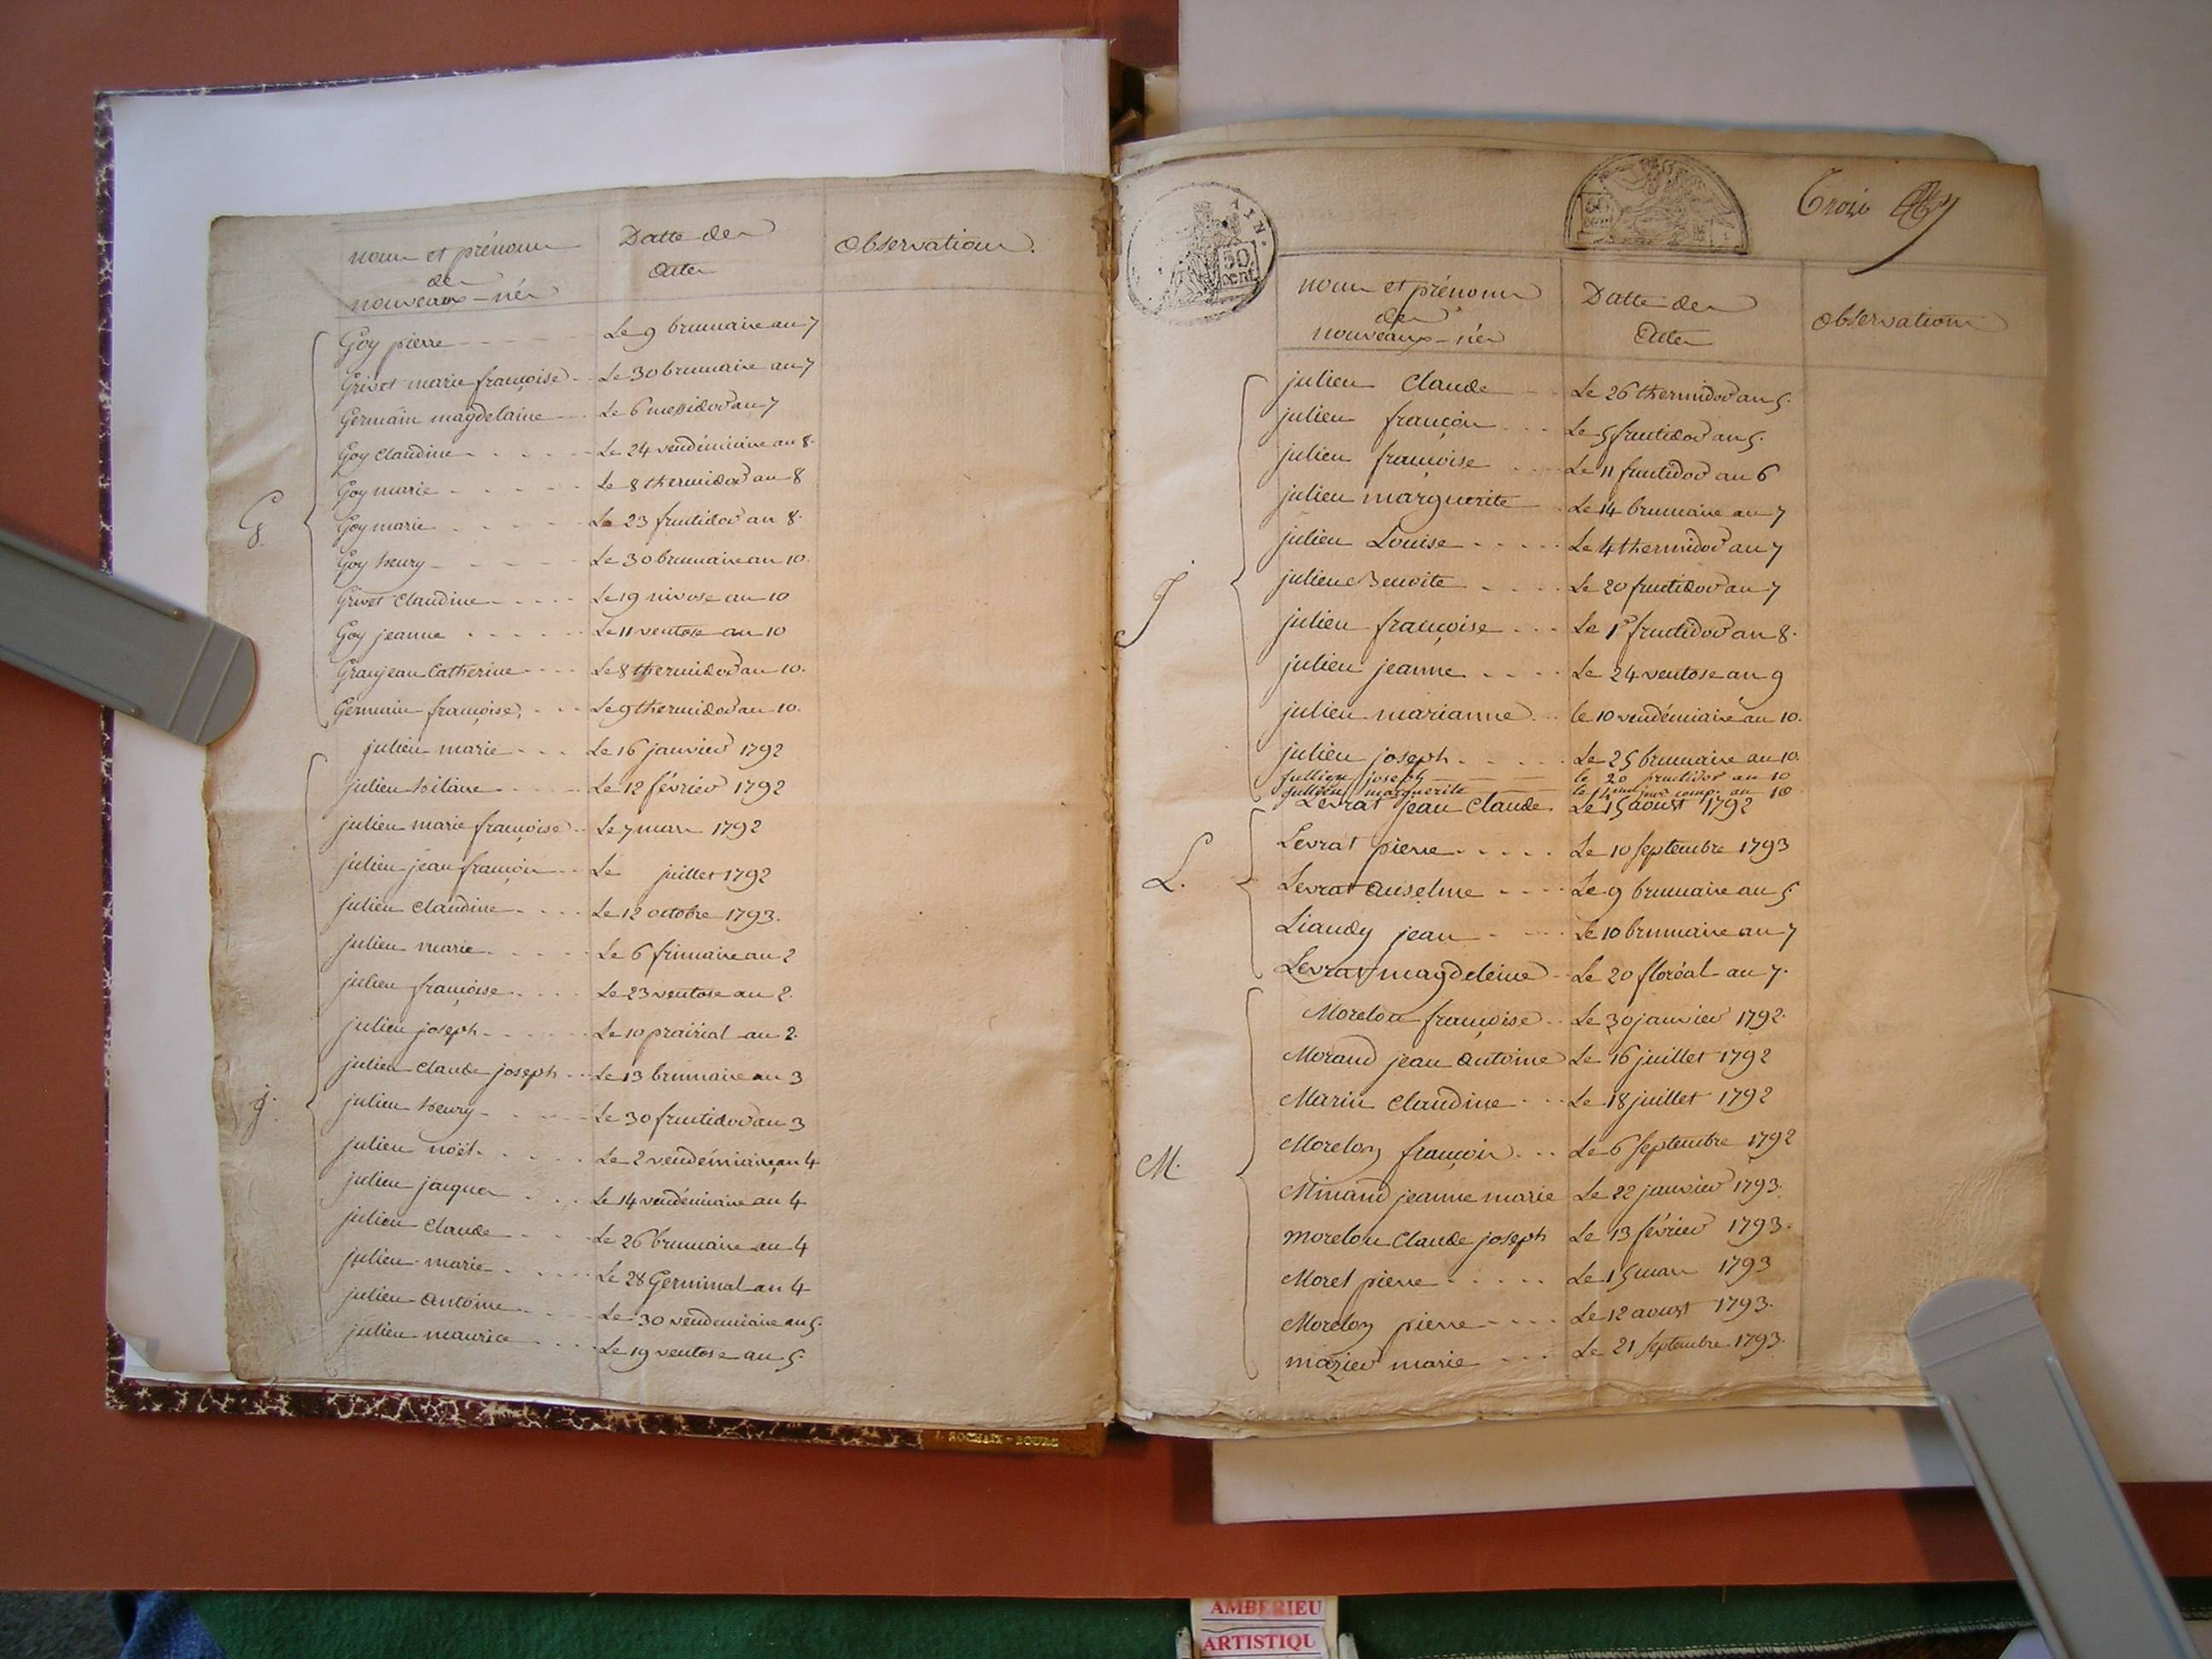 noms et prénoms
des
nouveaux-nés
Datte des
actes
observations.
G.
Goy pierre Le 9 brumaire an 7
Grivet marie françoise Le 30 brumaire an 7
Germain magdelaine Le 6 messidor an 7
Goy Claudine Le 24 vendémiaire an 8.
Goy marie Le 8 thermidor an 8
Goy marie Le 23 fructidor an 8.
Goy henry Le 30 brumaire an 10.
Grivet Claudine Le 19 nivose an 10
Goy jeanne Le 11 ventose an 10
Granjean Catherine Le 8 thermidor an 10.
Germain françoise Le 9 thermidor an 10.
j.
julien marie Le 16 janvier 1792
julien hilaire Le 12 février 1792
julien marie françoise Le 7 mars 1792
julien jean françois Le juillet 1792
julien Claudine Le 12 octobre 1793.
julien marie Le 6 frimaire an 2
julien françoise Le 23 ventose an 2.
julien joseph Le 10 prairial an 2.
julien Claude joseph Le 13 brumaire an 3
julien henry Le 30 fructidor an 3
julien noël Le 2 vendémiaire an 4
julien jacques Le 14 vendémiaire an 4
julien Claude Le 26 brumaire an 4
julien marie Le 28 Germinal an 4
julien antoine Le 30 vendemiaire an 5.
julien maurice Le 19 ventose an 5.
J. ROCHAIX-BOURG
AIN.
50
cent
Trois
noms et prénoms
des
nouveaux-nés
Datte des
actes
observations
J.
julien Claude Le 26 thermidor an 5.
julien françois Le 5 fructidor an 5.
julien françoise Le 11 fructidor an 6
julien marguerite Le 14 brumaire an 7
julien Louise Le 4 thermidor an 7
julien Benoite Le 20 fructidor an 7
julien françoise Le 1er fructidor an 8.
julien jeanne Le 24 ventose an 9
julien marianne le 10 vendémiaire an 10.
julien joseph Le 25 brumaire an 10.
jullien joseph le 20 fructidor an 10
jullien marguerite le 4eme jour comp. an 10
L.
Levrat jean Claude Le 15 aoust 1792
Levrat pierre Le 10 septembre 1793
Levrat anselme Le 9 brumaire an 5
Liaudy jean Le 10 brumaire an 7
Levrat magdeleine Le 20 floréal an 7.
M.
Morelon françoise Le 30 janvier 1792.
Morand jean antoine Le 16 juillet 1792
Marin Claudine Le 18 juillet 1792
Morelon françois Le 6 septembre 1792
Minand jeanne marie Le 22 janvier 1793.
morelon Claude joseph Le 13 février 1793.
Morel pierre Le 15 mars 1793
Morelon pierre Le 12 aoust 1793.
mazier marie Le 21 septembre 1793.
AMBERIEU
ARTISTIQU